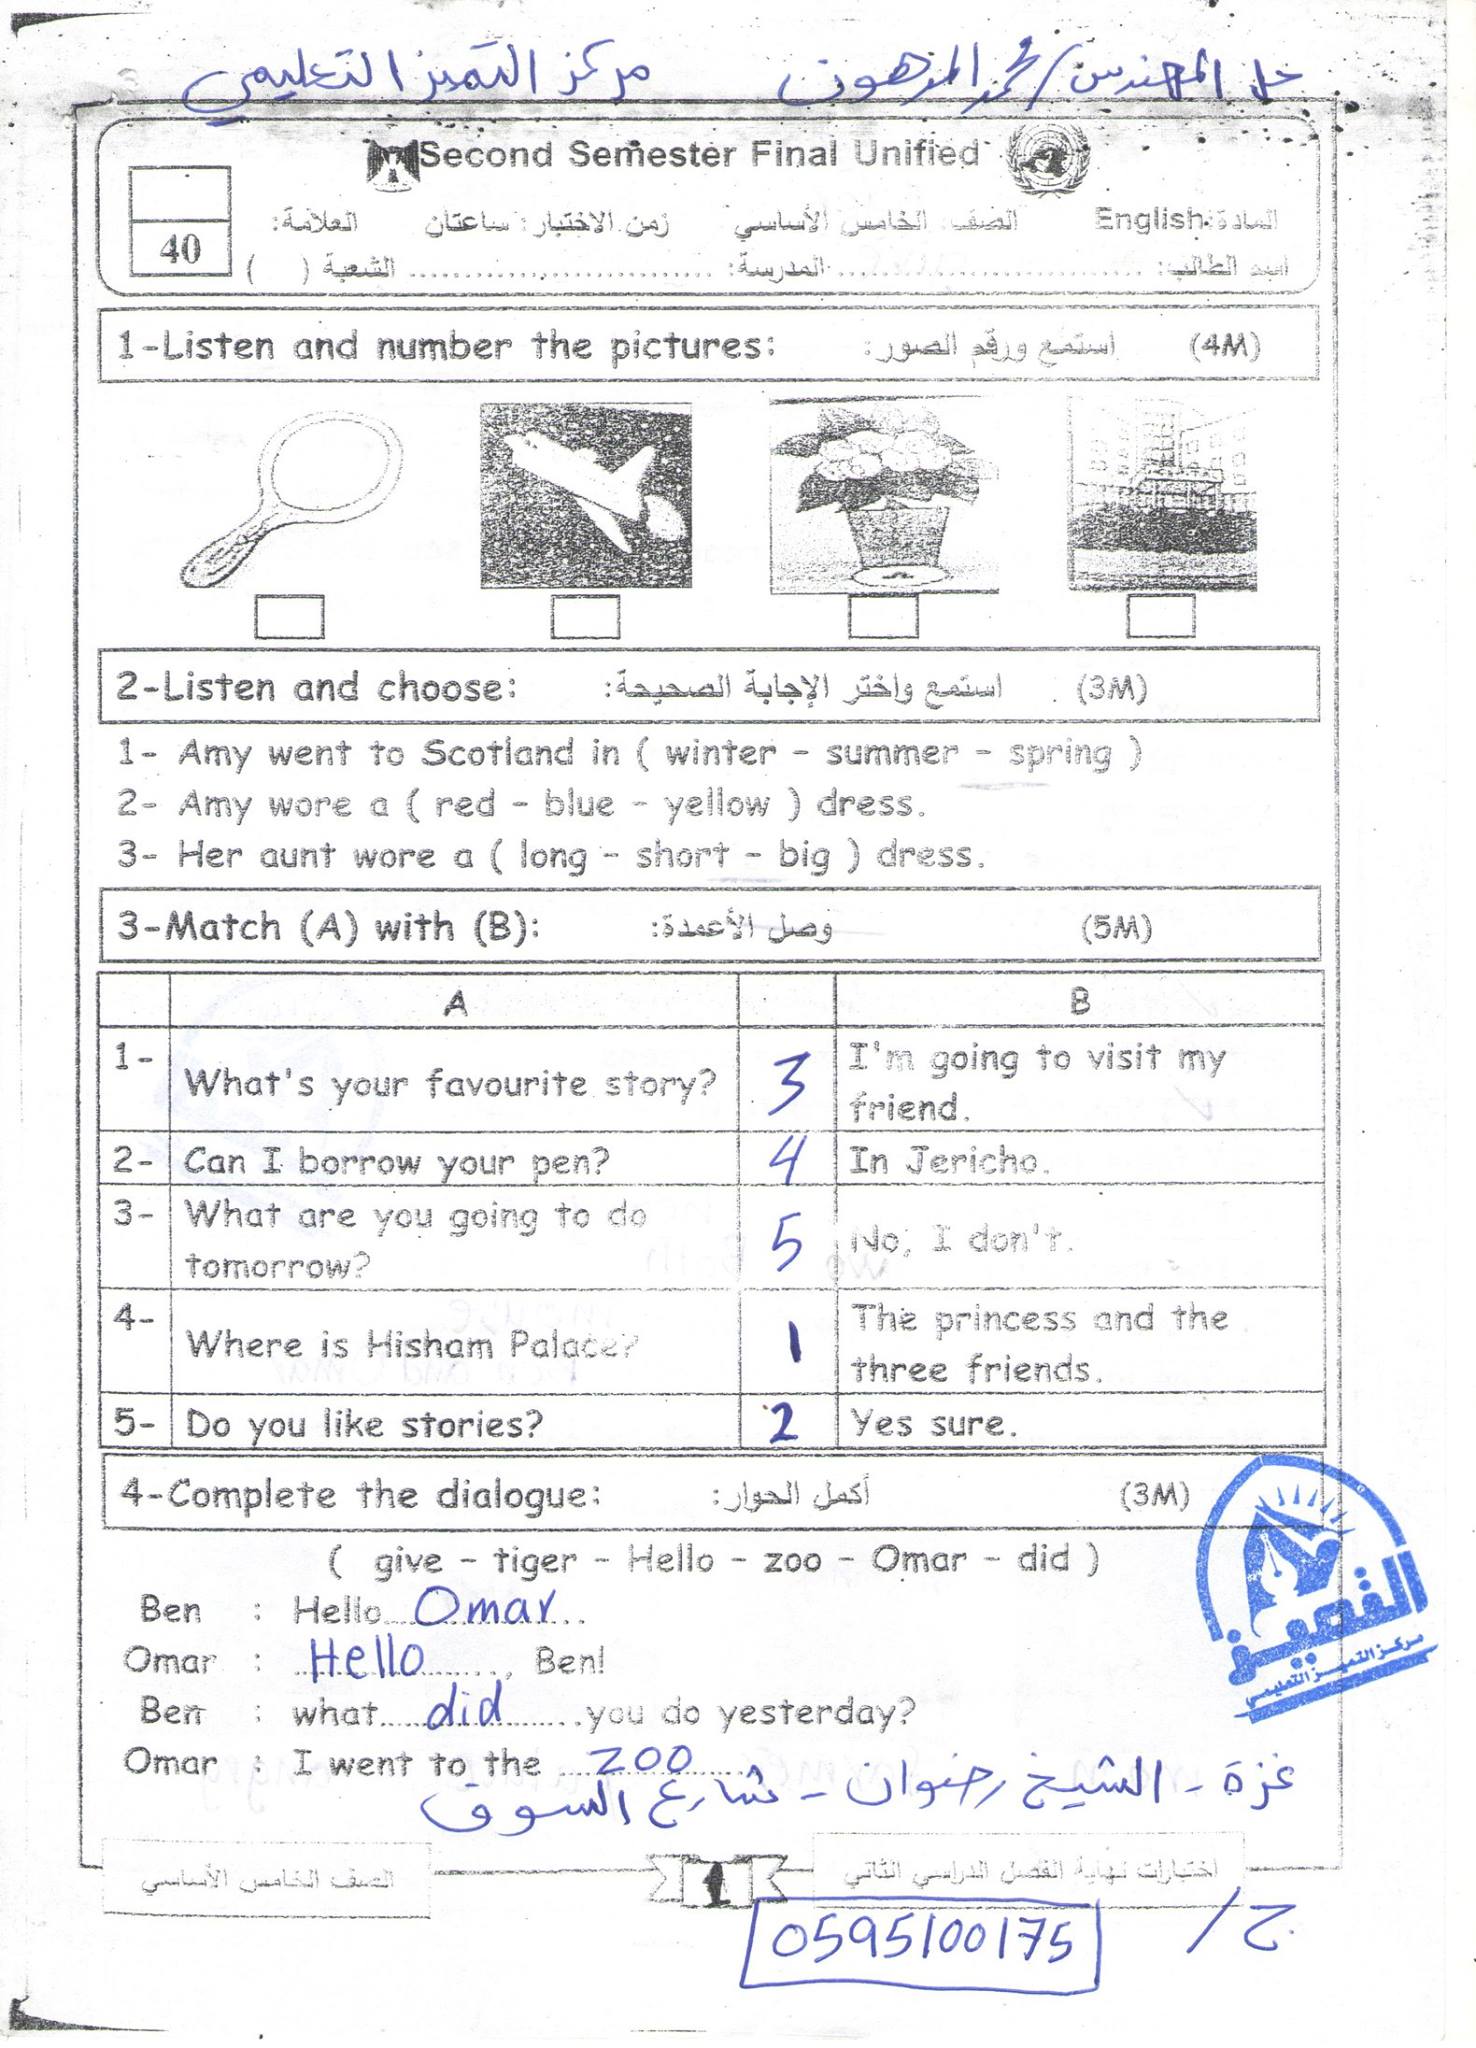 حل المهندس/محمد المدهون مركز التميز التعليمي
Second Semester Final Unified
المادة: English الصف: الخامس الأساسي زمن الاختبار: ساعتان العلامة:
40
اسم الطالب: ........................ المدرسة: ........................ الشعبة ( )
1-Listen and number the pictures: استمع ورقم الصور: (4M)
2-Listen and choose: استمع واختر الإجابة الصحيحة: (3M)
1- Amy went to Scotland in ( winter - summer - spring )
2- Amy wore a ( red - blue - yellow ) dress.
3- Her aunt wore a ( long - short - big ) dress.
3-Match (A) with (B): وصل الأعمدة: (5M)
A B
1- What's your favourite story? 3 I'm going to visit my friend.
2- Can I borrow your pen? 4 In Jericho.
3- What are you going to do tomorrow? 5 No, I don't.
4- Where is Hisham Palace? 1 The princess and the three friends.
5- Do you like stories? 2 Yes sure.
4-Complete the dialogue: أكمل الحوار: (3M)
( give - tiger - Hello - zoo - Omar - did )
Ben : Hello Omar
Omar : Hello, Ben!
Ben : what did you do yesterday?
Omar : I went to the zoo
التميز
مركز التميز التعليمي
غزة - الشيخ رضوان - شارع السوق
الصف الخامس الأساسي 1 اختبارات نهاية الفصل الدراسي الثاني
ج/ 0595100175